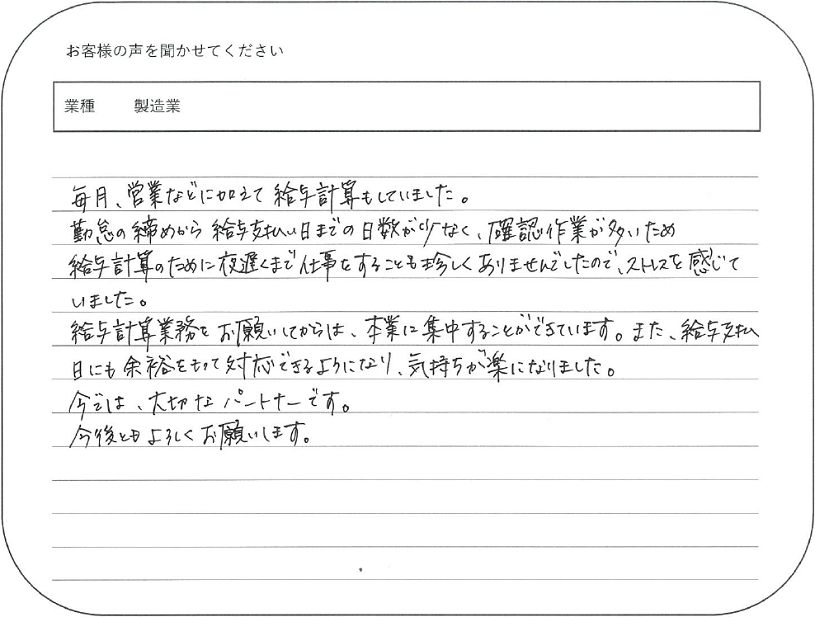 お客様の声を聞かせてください
業種 製造業
毎月、営業などに加えて給与計算もしていました。
勤怠の締めから給与支払い日までの日数が少なく、確認作業が多いため
給与計算のために夜遅くまで仕事をすることも珍しくありませんでしたので、ストレスを感じて
いました。
給与計算業務をお願いしてからは、本業に集中することができています。また、給与支払
日にも余裕をもって対応できるようになり、気持ちが楽になりました。
今では、大切なパートナーです。
今後ともよろしくお願いします。